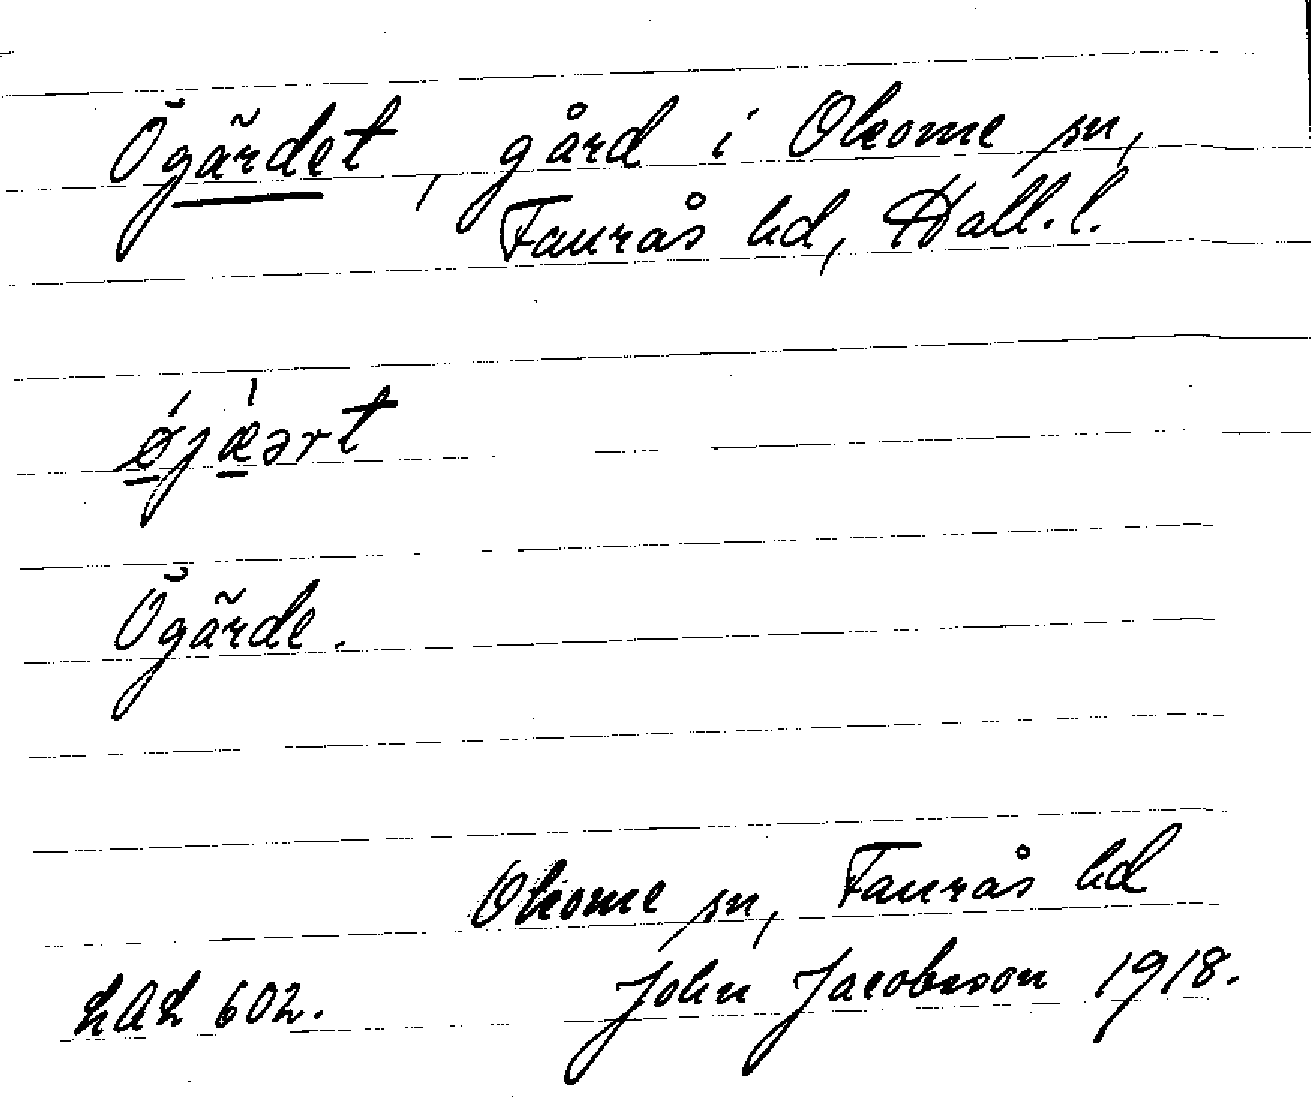 Ögärdet, gård i Okome sn,
Faurås hd, Hall. l.
ǿjǽərt
Ögärde.
Okome sn, Faurås hd
LAL 602. John Jacobsson 1918.